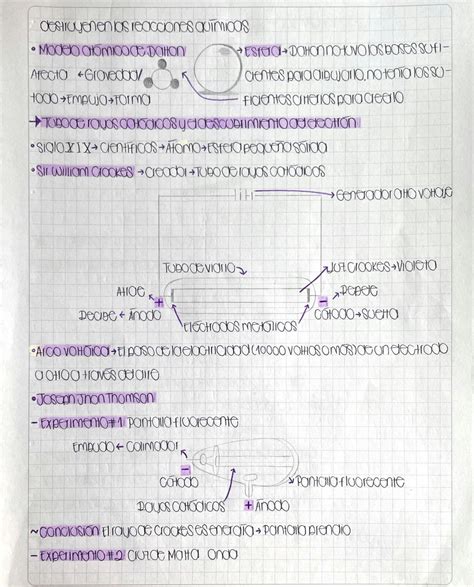 destruyen en las reacciones químicas
• Modelo atómico de Dalton → Esfera → Dalton no tuvo las bases sufi-
Afecta ← Gravedad cientes para dibujarlo, no tenía los su-
todo → Empujo → Forma ficientes criterios para crearlo
→ Tubo de rayos catódicos y el descubrimiento del electrón
• Siglo XIX → Científicos → Átomo → Esfera pequeña sólida
• Sir William Crookes → Creador → Tubo de rayos catódicos
→ Generador alto voltaje
Tubo de vidrio Luz Crookes → Violeta
Atrae + - Repele
Recibe ← Ánodo Electrodos metálicos Cátodo → Suelta
• Arco voltáico → El paso de la electricidad (10000 voltios o más) de un electrodo
a otro a través del aire
• Joseph Jhon Thomson
- Experimento #1 Pantalla fluorecente
Embudo ← Colimador
- Cátodo → Pantalla fluorecente
Rayos catódicos + Ánodo
~ Conclusión El rayo de Crookes es energía → Pantalla prendio
- Experimento #2 Cruz de Malta Onda